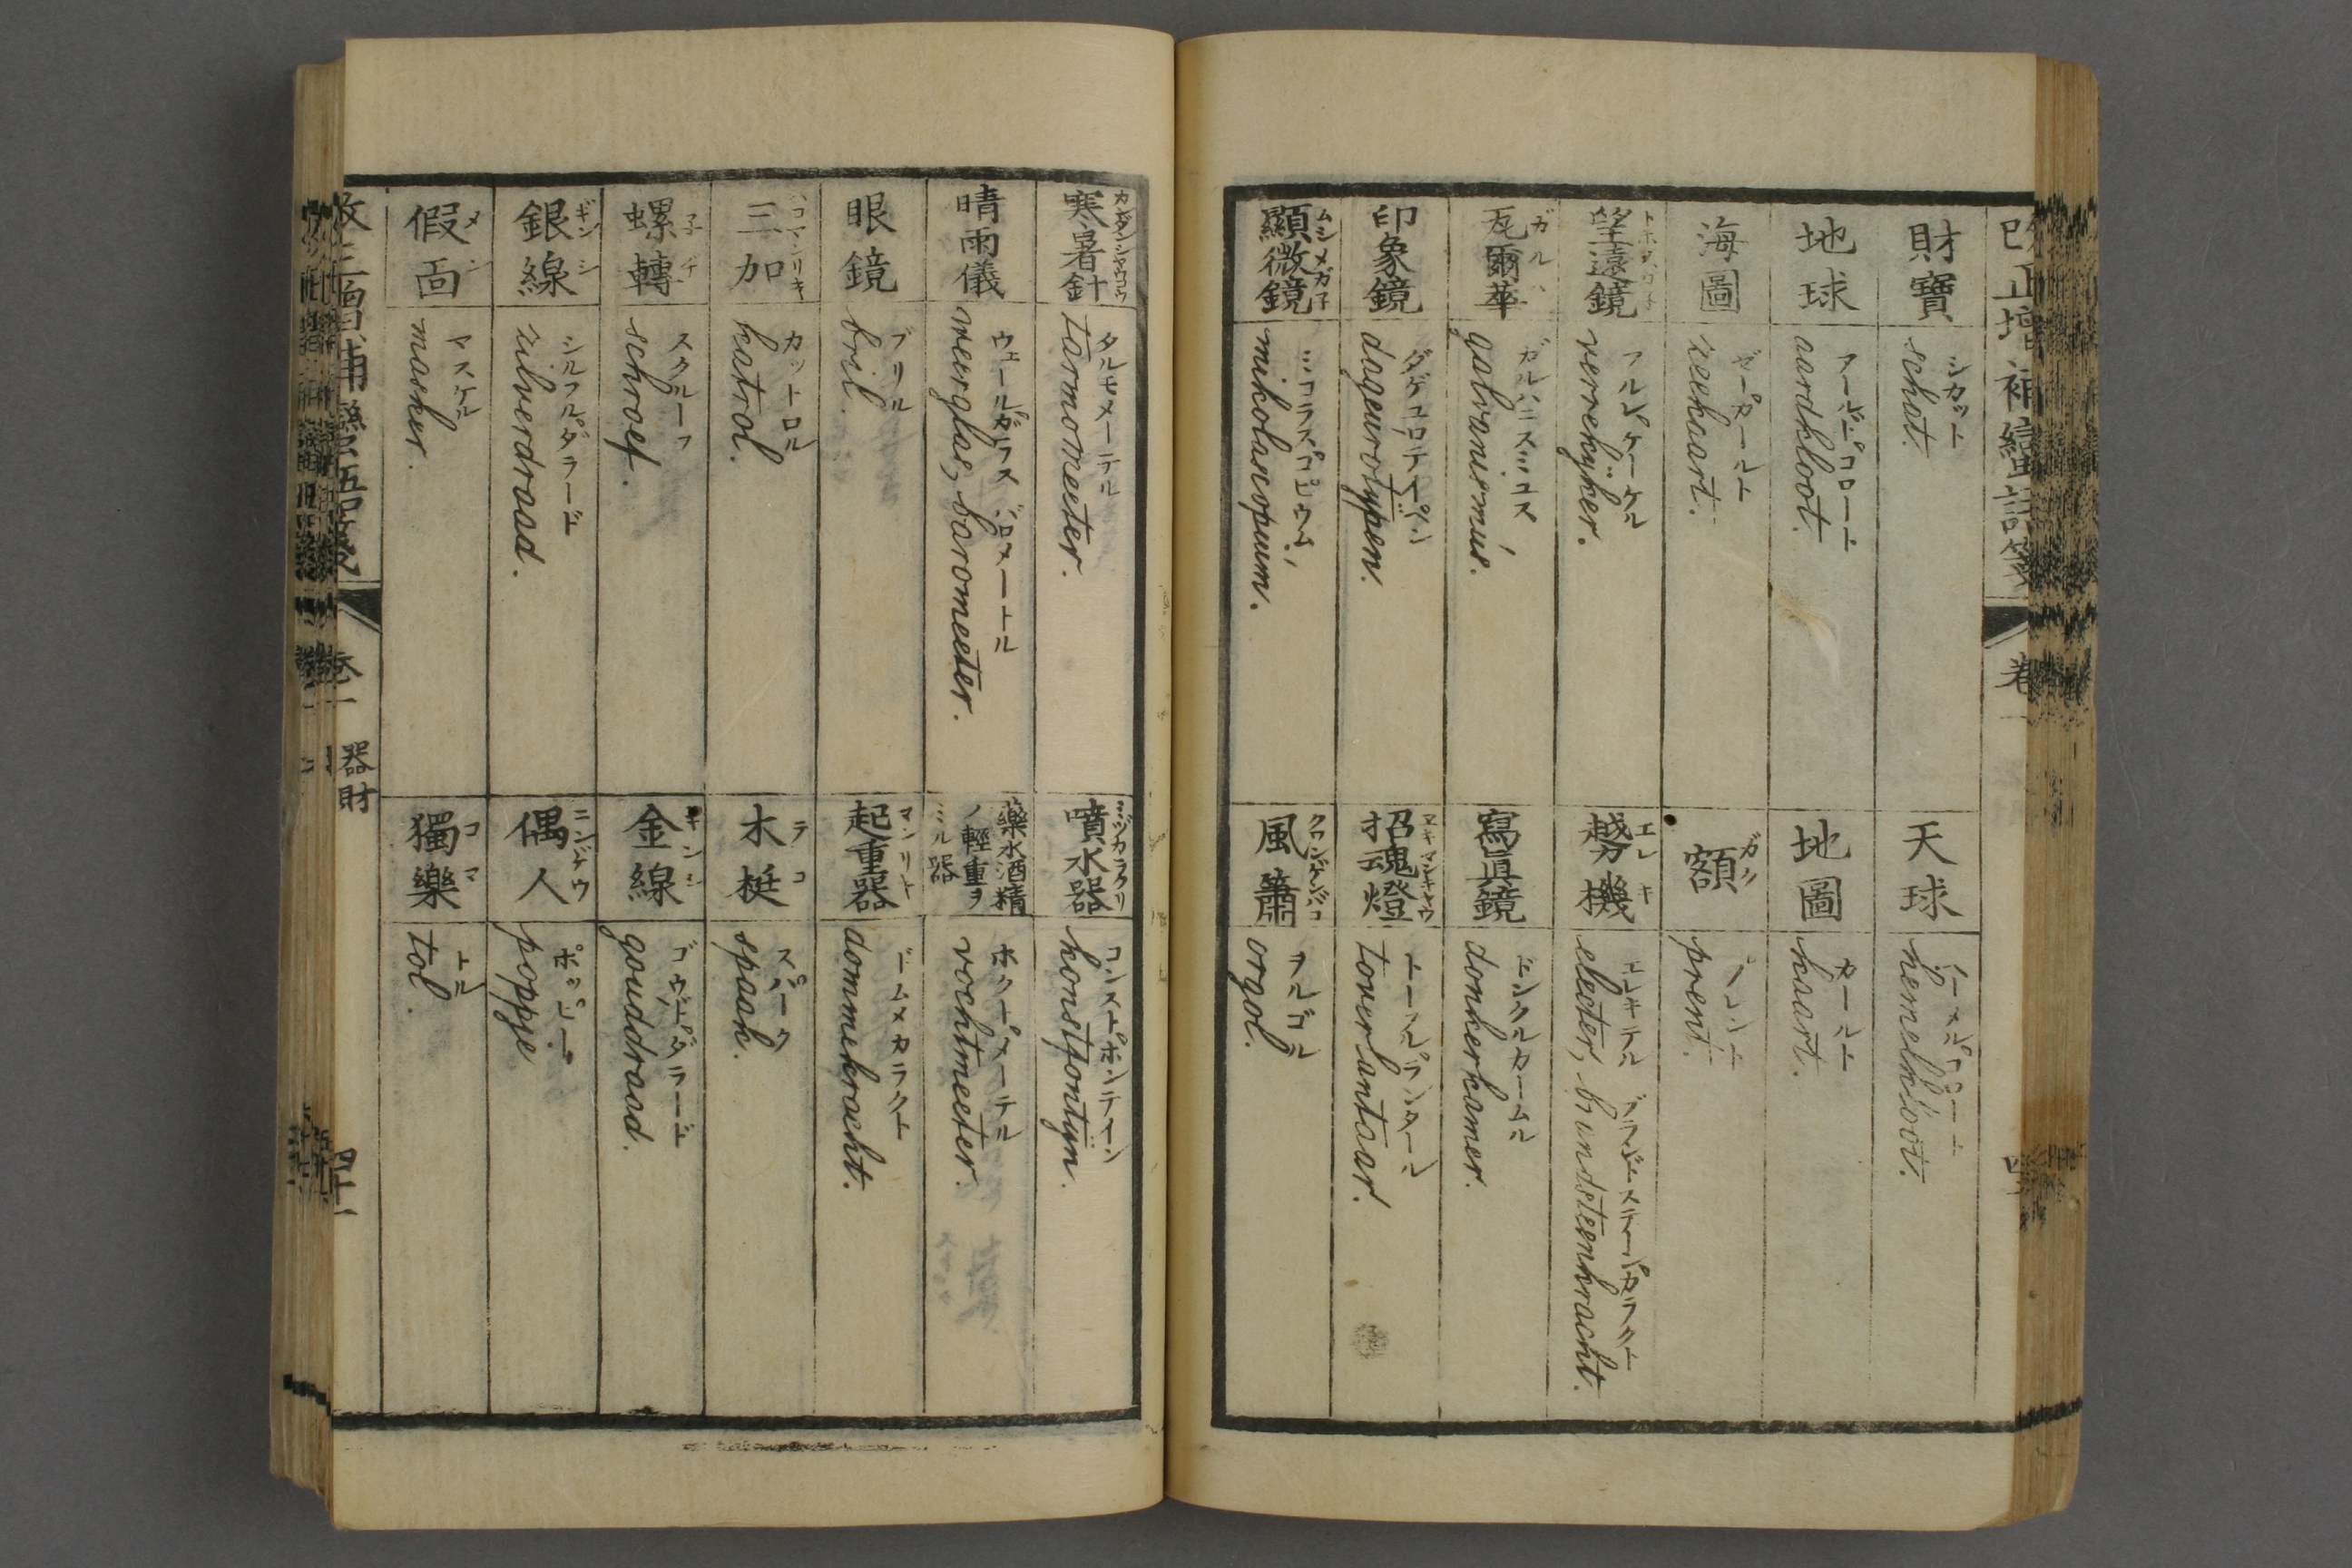 改正増補蠻語箋
卷一
財寶
シカット
schat.
地球
アールドコロート
aardkloot.
海圖
ゼーカールト
zeekaart.
望遠鏡
フルレケーケル
verrekÿker.
瓦爾華
ガルハ
ガルハニスミュス
galvanismús.
印象鏡
ダゲュロテイペン
dageurotypen.
顯微鏡
ムシメガネ
ミコラスコピウム
mikolascopuum.
天球
hemelkloot.
地圖
カールト
kaart.
額
ガク
prent.
越機
エレキ
エレキテル
electer, barndsteenkracht.
寫眞鏡
ドンクルカームル
donkerkamer.
招魂燈
トーフルランタール
toverlantaar.
風簫
ヲルゴル
orgol.
寒暑針
タルモメーテル
tarmomeeter.
晴雨儀
ウェールガラス バロメートル
weerglas, barometer.
眼鏡
ブリル
bril.
三加
コマンリキ
カットロル
katrol.
螺轉
スクルーフ
schroef.
銀線
ギンシ
シルフルダラード
zilverdraad.
假面
メン
マスケル
masker.
噴水器
ミヅカラクリ
コンストホンテイン
konstfontÿn.
藥水酒精
ノ輕重ヲ
ミル器
ホクートメーテル
vochtmeeter.
起重器
マンリキ
ドームメカラクト
dommekracht.
木梃
テコ
スパーク
spaak.
金線
キンシ
ゴウドダラード
gouddraad.
偶人
ニンギヤウ
ポッピー
poppje
獨樂
コマ
トル
tol.
改正增補蠻語箋
卷一
器財
四十一